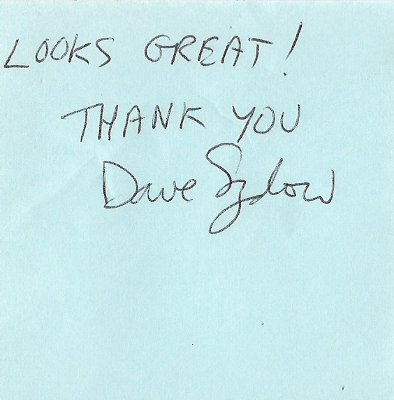 LOOKS GREAT!
THANK YOU
Dave Sydow